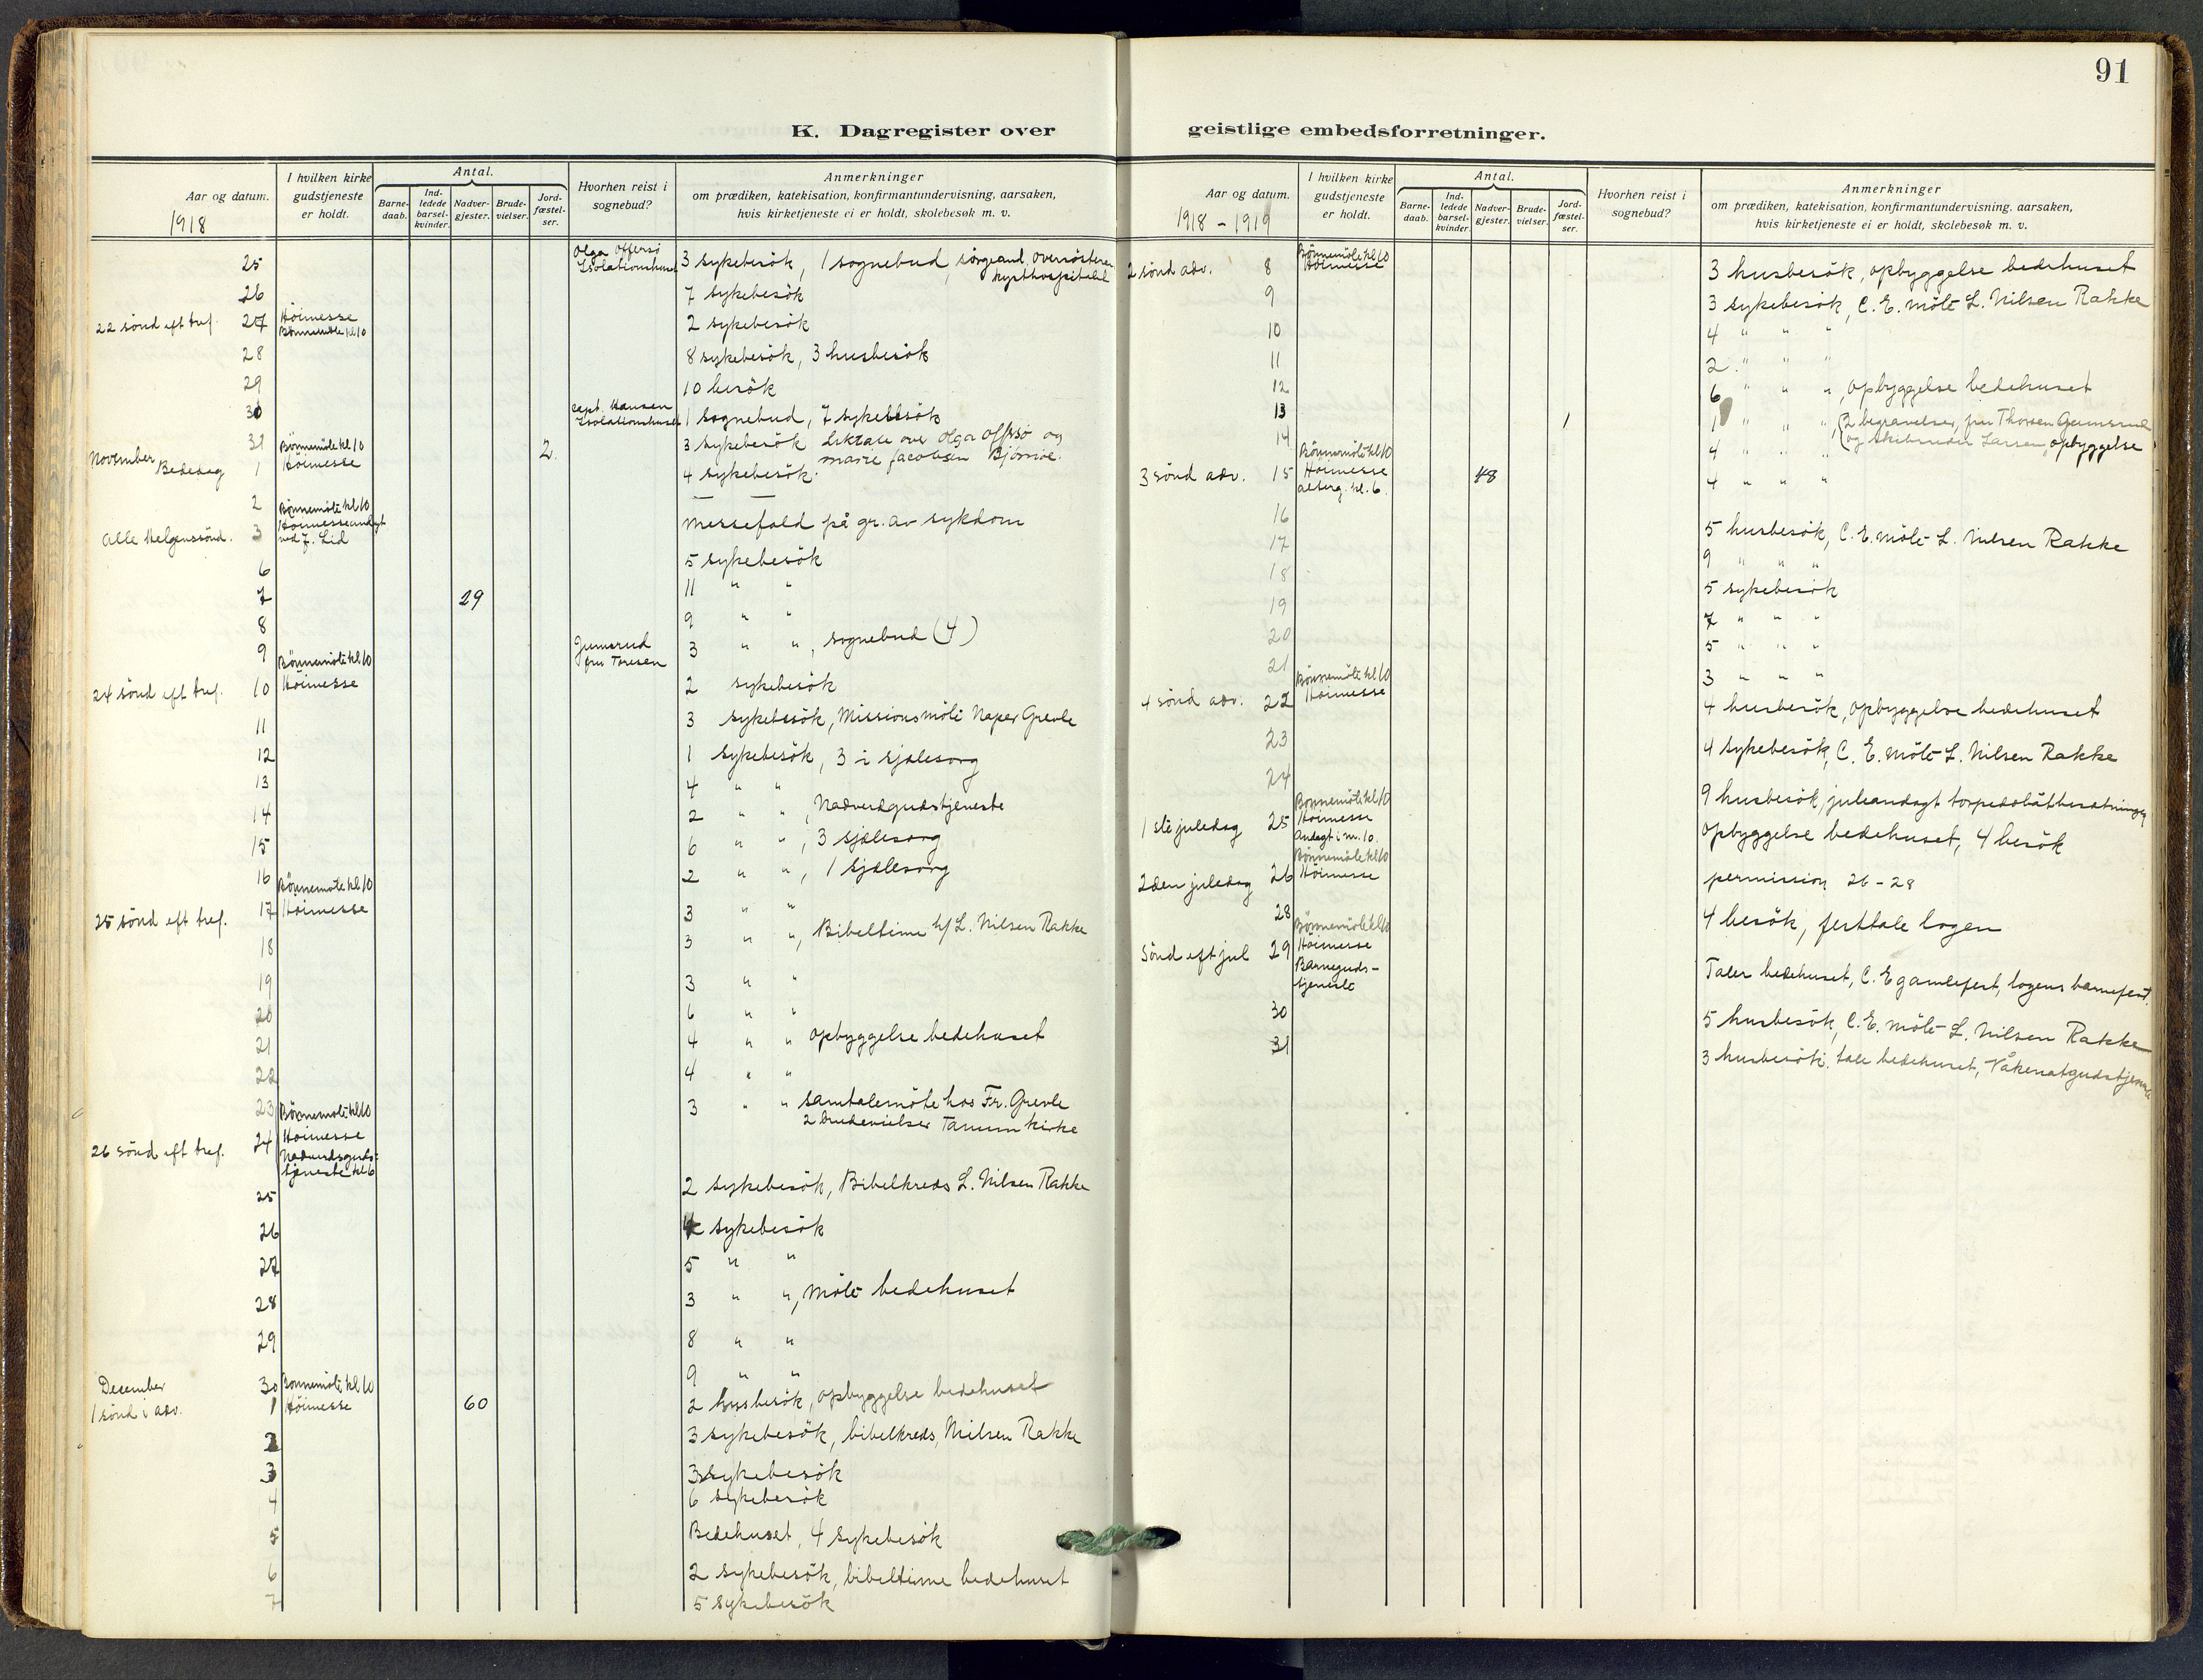 91
K. Dagregister over geistlige embedsforretninger.
Aar og datum.
1918
I hvilken kirke gudstjeneste er holdt.
Antal.
Barnedaab.
Indledede barselkvinder.
Nadvergjester.
Brudevielser.
Jordfæstelser.
Hvorhen reist i sognebud?
Anmerkninger
om prædiken, katekisation, konfirmantundervisning, aarsaken,
hvis kirketjeneste ei er holdt, skolebesøk m. v.
25 Olga Offersø Isolationshuset 3 sykebesök, 1 sognebud, kysthospitalet
26 7 sykebesök
22 sönd eft tref. 27 Höimesse Bönnemöte kl 10 2 sykebesök
28 8 sykebesök, 3 husbesök
29 10 besök
30 capt. Hansen Isolationshuset 1 sognebud, 7 sykebesök
31 2 3 sykebesök Liktale over Olga Offersø og Marie Jacobsen Björnöe.
November Bededag 1 Bönnemöte kl 10 Höimesse 4 sykebesök.
2 — —
Alle Helgenssönd. 3 Bönnemöte kl 10 Höimesseandagt ved J. Lid Messefald på gr. av sykdom
6 5 sykebesök
7 29 11 " "
8 9 " "
9 Jumsrud fru Toresen 3 " ", sognebud (4)
24 sönd eft tref. 10 Bönnemöte kl 10 Höimesse 2 sykebesök
11 3 sykebesök, Missionsmöte Naper Grevle
12 1 sykebesök, 3 i sjælesorg
13 4 " "
14 2 " ", Nadverdgudstjeneste
15 6 " ", 3 sjælesorg
16 2 " ", 1 sjælesorg
25 sönd eft tref. 17 Bönnemöte kl 10 Höimesse 3 " "
18 3 " ", Bibeltime h/ L. Nilsen Rakke
19 3 " "
20 6 " "
21 4 " " opbyggelse bedehuset
22 4 " "
23 3 " " samtalemöte hos Fr. Grevle
2 brudevielser Tanum kirke
26 sönd eft tref. 24 Bönnemöte kl 10 Höimesse Nadverdsgudstjeneste kl 6
25 2 sykebesök, Bibelkreds L. Nilsen Rakke
26 4 sykebesök
27 5 " "
28 3 " ", möte bedehuset
29 8 " "
30 9 " "
December
1 sönd i adv. 1 Bönnemöte kl 10 Höimesse 60 2 husbesök, opbyggelse bedehuset
2 3 sykebesök, bibelkreds, Nilsen Rakke
3 3 sykebesök
4 6 sykebesök
5 Bedehuset, 4 sykebesök
6 2 sykebesök, bibeltime bedehuset
7 5 sykebesök
Aar og datum.
1918 - 1919
I hvilken kirke gudstjeneste er holdt.
Antal.
Barnedaab.
Indledede barselkvinder.
Nadvergjester.
Brudevielser.
Jordfæstelser.
Hvorhen reist i sognebud?
Anmerkninger
om prædiken, katekisation, konfirmantundervisning, aarsaken,
hvis kirketjeneste ei er holdt, skolebesøk m. v.
2 sönd adv. 8 Bönnemöte kl 10 Höimesse 3 husbesök, opbyggelse bedehuset
9 3 sykebesök, C. E. möte L. Nilsen Rakke
10 4 " " "
11 2 " " "
12 6 " " ", opbyggelse bedehuset
13 1 1 " " ", (2 begravelser, fru Thorsen
14 4 " " " og skibsreder Larsen, opbyggelse
3 sönd adv. 15 Bönnemöte kl 10 Höimesse alterg. kl. 6. 48 4 " " "
16 5 husbesök, C. E. möte L. Nilsen Rakke
17 9 " " "
18 5 sykebesök
19 7 " " "
20 5 " " "
21 3 " " "
4 sönd adv. 22 Bönnemöte kl 10 Höimesse 4 husbesök, opbyggelse bedehuset
23 4 sykebesök, C. E. möte L. Nilsen Rakke
24 9 husbesök, juleandagt torpedobåtbesætningen
1ste juledag 25 Bönnemöte kl 10 Höimesse Andagt i m. 10. opbyggelse bedehuset, 4 besök
2den juledag 26 Bönnemöte kl 10 Höimesse permission 26-28
28 4 besök, festtale logen
Sönd eft jul 29 Bönnemöte kl 10 Höimesse Barnegudstjeneste Taler bedehuset, C. E gamlefest, logens barnefest.
30 5 husbesök, C. E. möte L. Nilsen Rakke
31 3 husbesök, tale bedehuset, Våkenatgudstjeneste